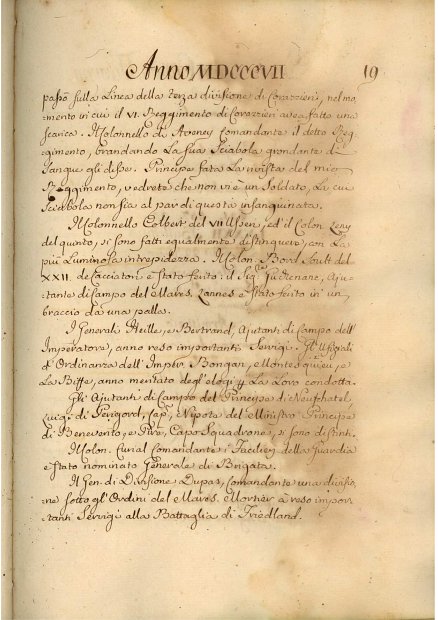 Anno MDCCCVII 19
passò sulla Linea della terza divisione di Corazzieri, nel mo-
mento in cui il VI. Reggimento di Corazzieri avea fatto una
scarica. Il Colonnello di Aveney Comandante il detto Reg-
gimento, brandando La sua Sciabola grondante di
sangue gli disse. Principe fate La rivista del mio
Reggimento, vedrete che non vi è un Soldato, La cui
Sciabola non sia al par di questa insanguinata.
Il Colonnello Colbert del VII Usseri, ed il Colon. Lery
del quinto, si sono fatti egualmente distinguere, con La
più Luminosa intrepidezza. Il Colon. Bord Soult del
XXII. de Cacciatori è Stato ferito: il Sig.
tante di Campo del Mares. Lannes è Stato ferito in un
braccio da una palla.
I Generali Reille, e Bertrand, Ajutanti di Campo dell'
Imperatore, anno reso importanti Servigi. Gl'Uffiziali
d'Ordinanza dell'Imper. Bongar, e Montesquieu, e
La Biffe, anno meritato degl'elogi p La Loro condotta.
Gli Ajutanti di Campo del Principe di Neufchatel
Luigi di Perigord, Cap., Nipote del Ministro Principe
di Benevento, e Pire, Capo Squadrone, si sono distinti.
Il Colon. Curial Comandante i Fucilieri della Guardia
è Stato nominato Generale di Brigata.
Il Gen. di Divisione Dupas, Comandante una divisio-
ne sotto gl'Ordini del Mares. Mortier à reso impor-
tanti Servigi alla Battaglia di Friedland.